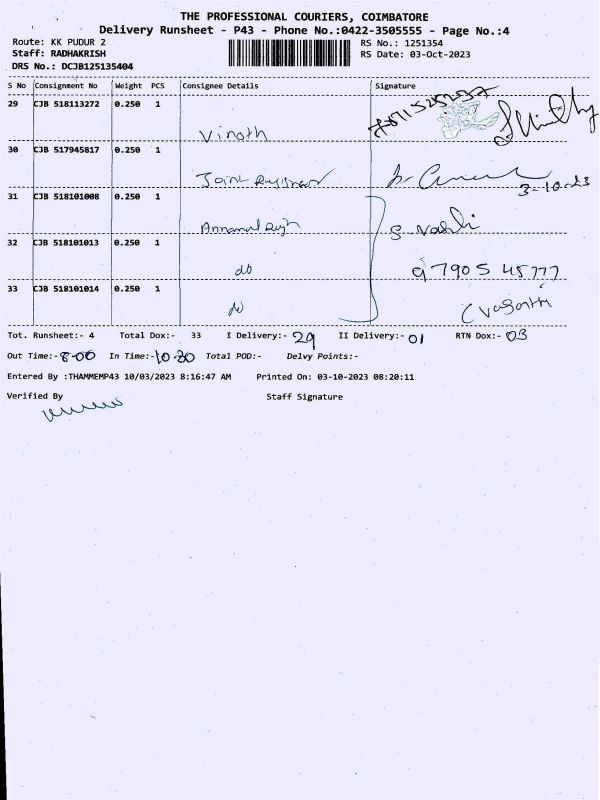 THE PROFESSIONAL COURIERS, COIMBATORE
Delivery Runsheet - P43 - Phone No.:0422-3505555 - Page No.:4
Route: KK PUDUR 2 RS No.: 1251354
Staff: RADHAKRISH RS Date: 03-Oct-2023
DRS No.: DCJB125135404
S No Consignment No Weight PCS Consignee Details Signature
29 CJB 518113272 0.250 1 Vinoth
30 CJB 517945817 0.250 1 Joint 3-10-23
31 CJB 518101008 0.250 1
32 CJB 518101013 0.250 1 do 97905 45777
33 CJB 518101014 0.250 1 do
Tot. Runsheet:- 4 Total Dox:- 33 I Delivery:- 29 II Delivery:- 01 RTN Dox:- 03
Out Time:- 8-00 In Time:- Total POD:- Delvy Points:-
Entered By :THAMMEMP43 10/03/2023 8:16:47 AM Printed On: 03-10-2023 08:20:11
Verified By Staff Signature